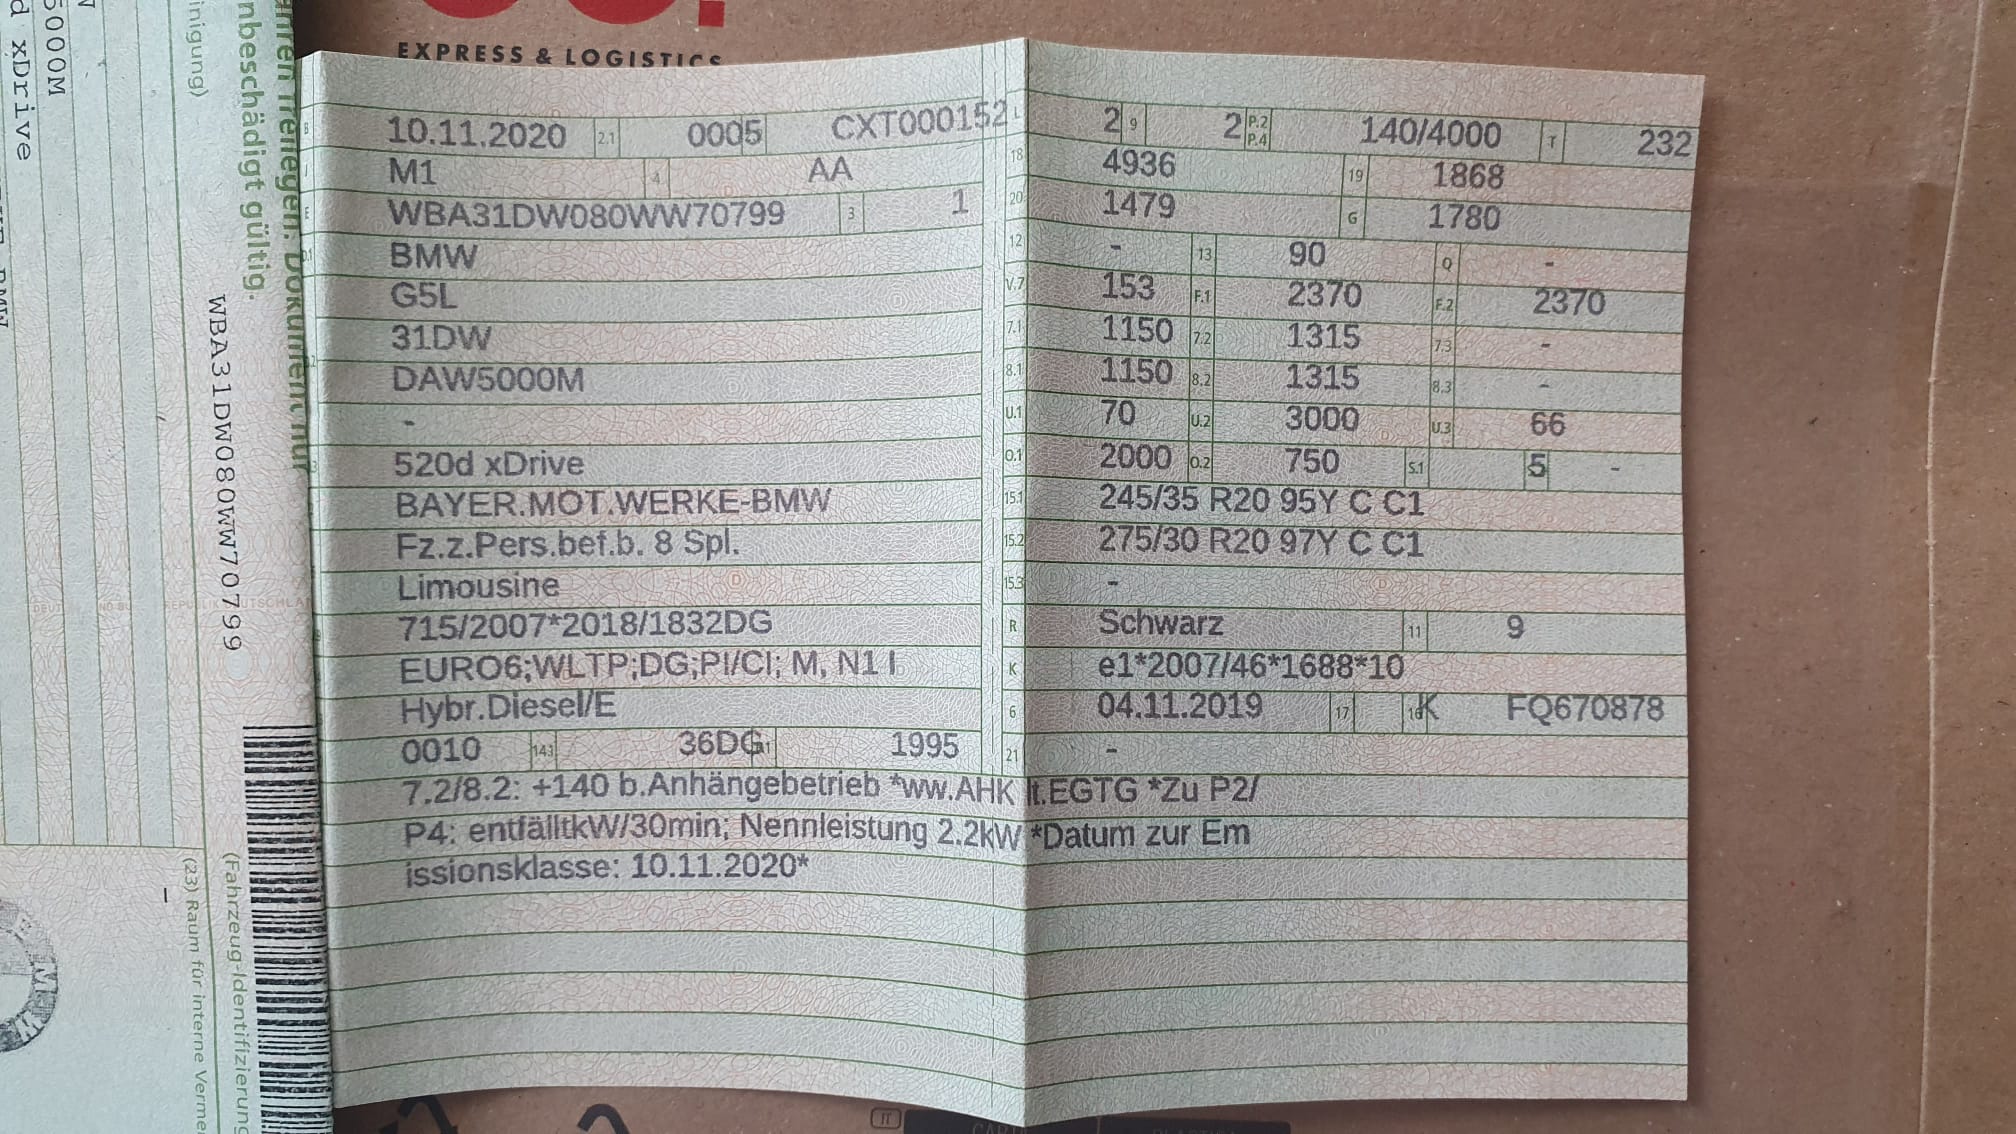 EXPRESS & LOGISTICS
B 10.11.2020 2.1 0005 CXT000152
J M1 4 AA
E WBA31DW080WW70799 3 1
D.1 BMW
G5L
31DW
DAW5000M
-
520d xDrive
BAYER.MOT.WERKE-BMW
Fz.z.Pers.bef.b. 8 Spl.
Limousine
715/2007*2018/1832DG
EURO6;WLTP;DG;PI/CI; M, N1 I
Hybr.Diesel/E
0010 14.1 36DG P.1 1995
L 2 9 2 P.2 P.4 140/4000 T 232
18 4936 19 1868
20 1479 G 1780
12 - 13 90 Q -
V.7 153 F.1 2370 F.2 2370
7.1 1150 7.2 1315 7.3 -
8.1 1150 8.2 1315 8.3 -
U.1 70 U.2 3000 U.3 66
O.1 2000 O.2 750 S.1 5 -
15.1 245/35 R20 95Y C C1
15.2 275/30 R20 97Y C C1
15.3 -
R Schwarz 11 9
K e1*2007/46*1688*10
6 04.11.2019 17 K 16 FQ670878
21 -
7.2/8.2: +140 b.Anhängebetrieb *ww.AHK lt.EGTG *Zu P2/
P4: entfälltkW/30min; Nennleistung 2.2kW *Datum zur Em
issionsklasse: 10.11.2020*
nbeschädigt gültig.
Dokument nur
WBA31DW080WW70799
(Fahrzeug-Identifizierung
(23) Raum für interne Verme
-
inigung)
5000M
d xDrive